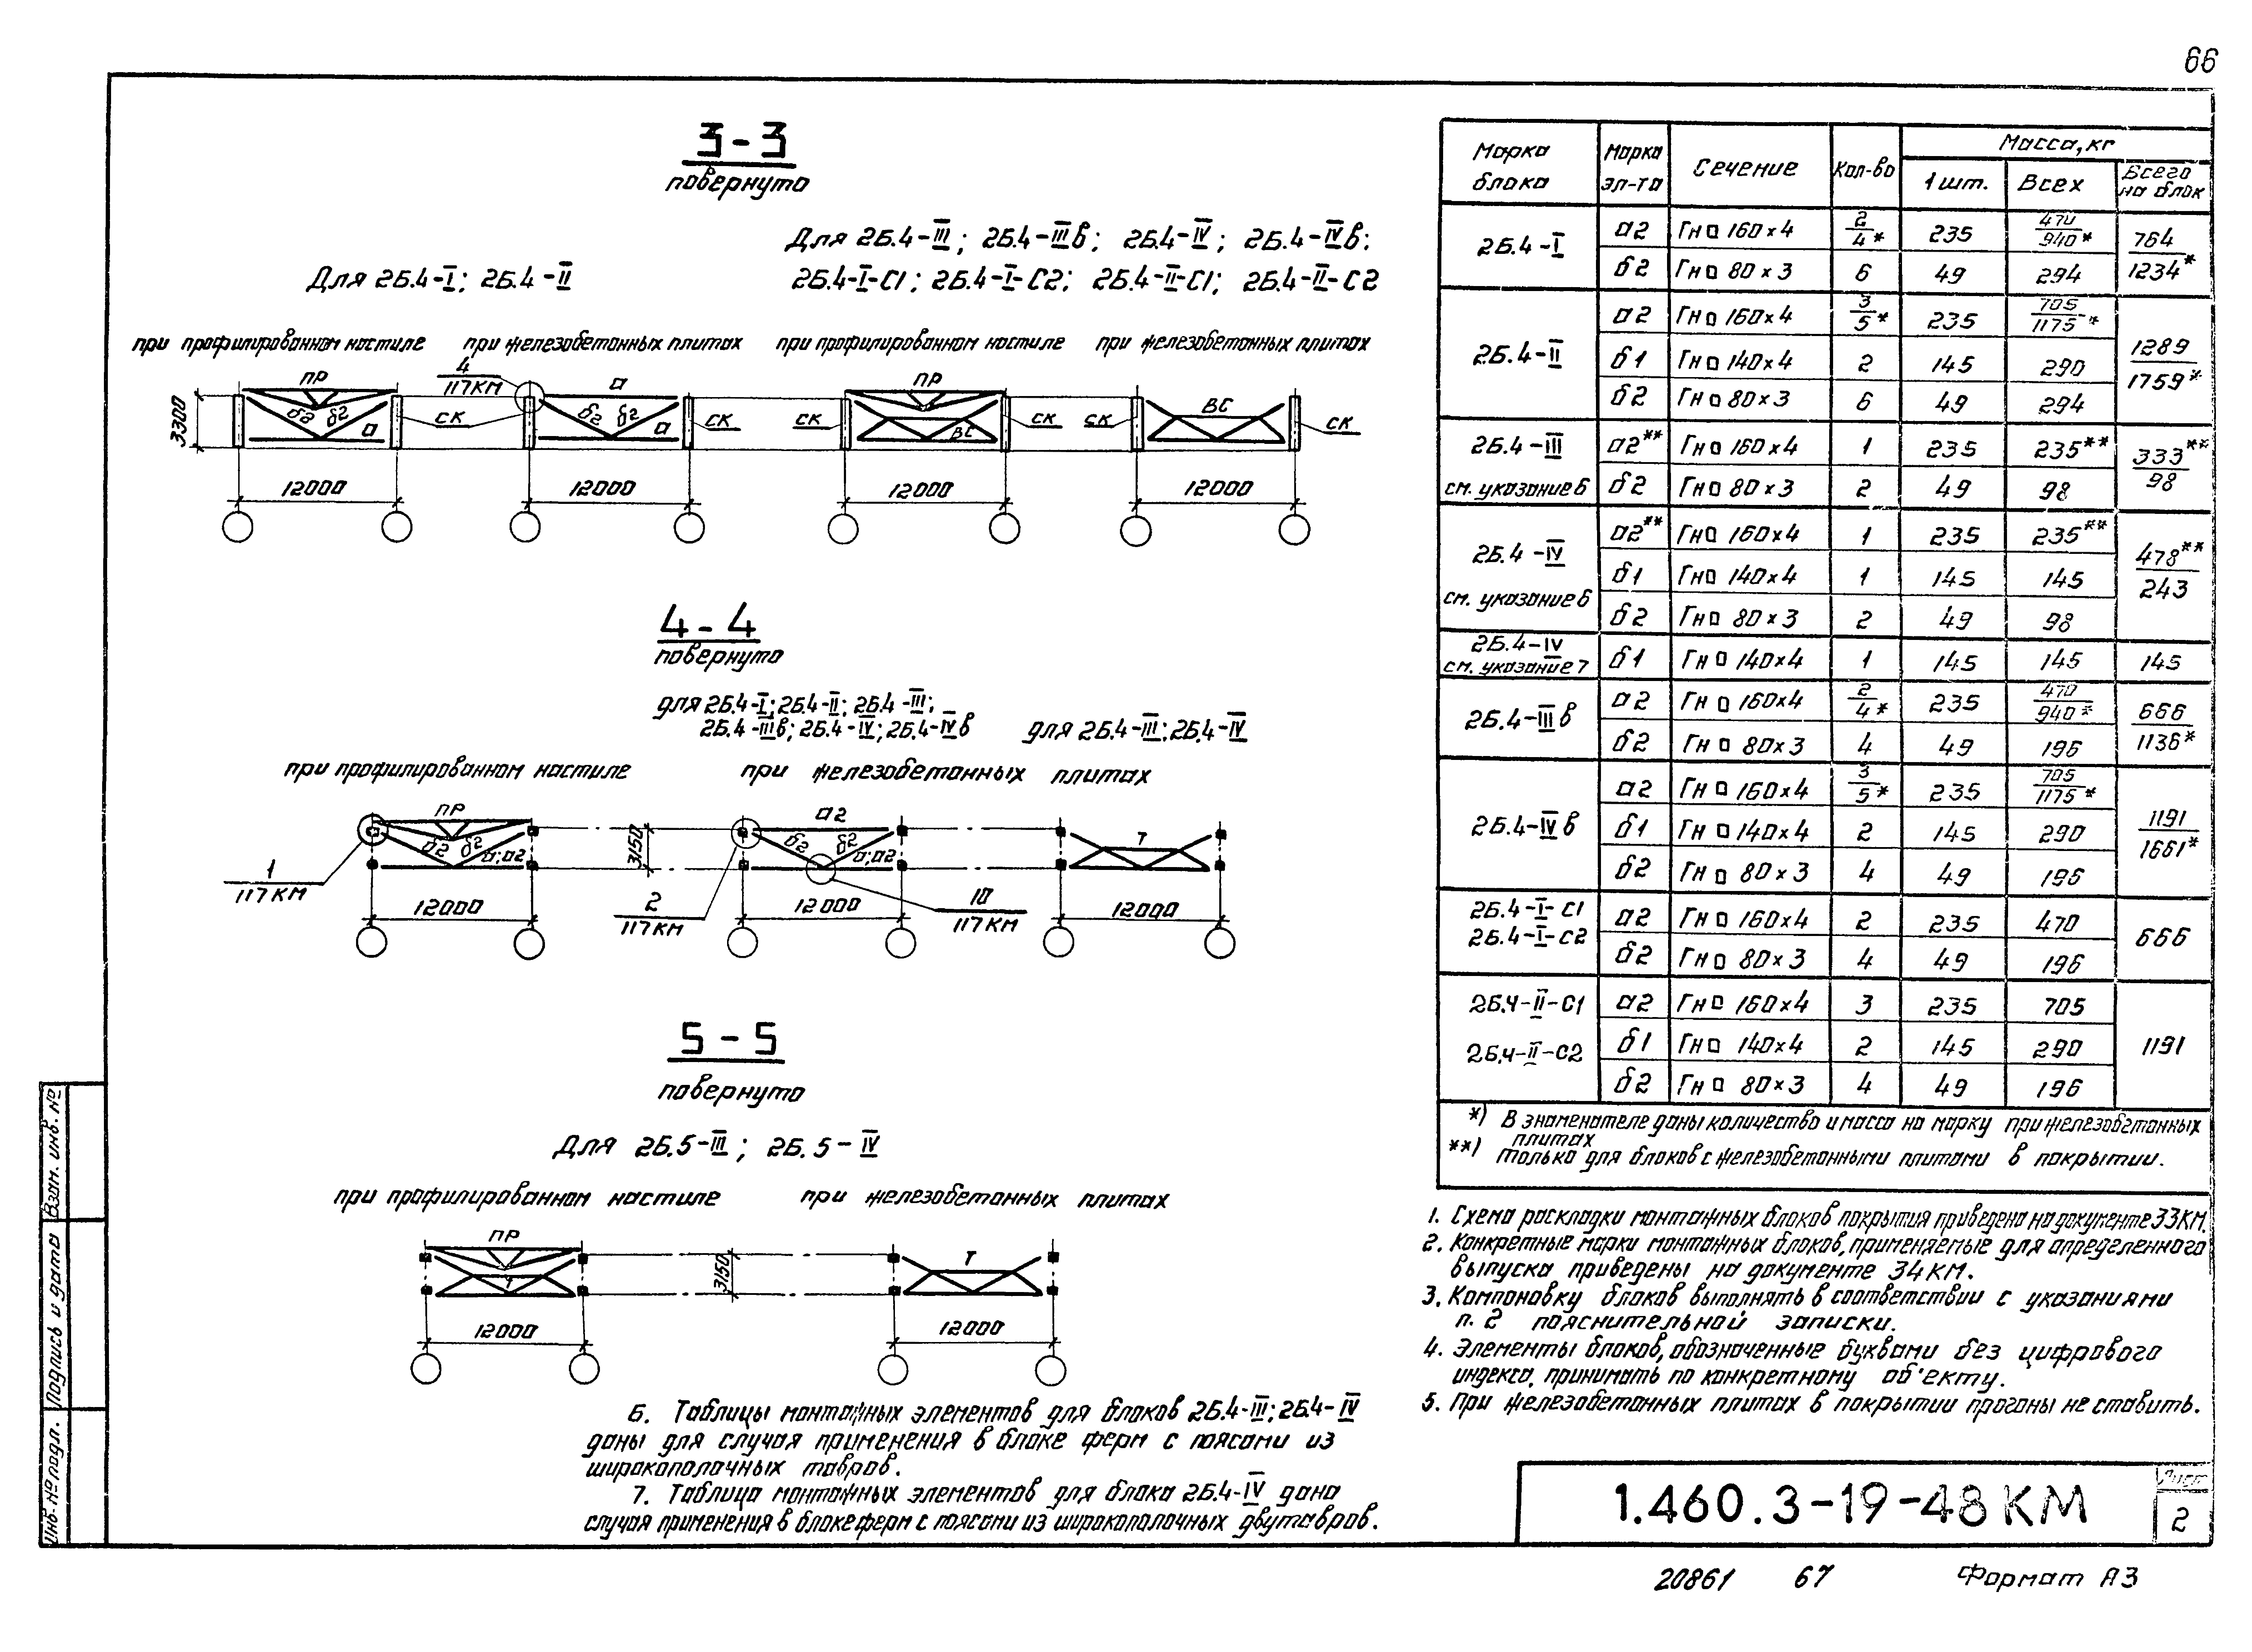 66
3-3
повернуто
Для 2Б.4-I; 2Б.4-II
Для 2Б.4-III; 2Б.4-IIIв; 2Б.4-IV; 2Б.4-IVв;
2Б.4-I-С1; 2Б.4-I-С2; 2Б.4-II-С1; 2Б.4-II-С2
при профилированном настиле
при железобетонных плитах
при профилированном настиле
при железобетонных плитах
3300
ПР
б2 б2
а
СК
4
117КМ
а
б2 б2
а
СК
СК
ПР
ВС
СК
СК
ВС
СК
12000 12000 12000 12000
4-4
повернуто
для 2Б.4-I; 2Б.4-II; 2Б.4-III;
2Б.4-IIIв; 2Б.4-IV; 2Б.4-IVв
для 2Б.4-III; 2Б.4-IV
при профилированном настиле
при железобетонных плитах
ПР
б2 б2
а; а2
1
117КМ
3150
а2
б2 б2
а; а2
2
117КМ
10
117КМ
Т
12000 12000 12000
5-5
повернуто
Для 2Б.5-III; 2Б.5-IV
при профилированном настиле
при железобетонных плитах
ПР
Т
3150
Т
12000 12000
6. Таблицы монтажных элементов для блоков 2Б.4-III; 2Б.4-IV
даны для случая применения в блоке ферм с поясами из
широкополочных тавров.
7. Таблица монтажных элементов для блока 2Б.4-IV дана
случая применения в блоке ферм с поясами из широкополочных двутавров.
Марка блока | Марка эл-та | Сечение | Кол-во | Масса, кг
1 шт. | Всех | Всего на блок
2Б.4-I | а2 | Гн □ 160×4 | 2/4* | 235 | 470/940* | 764/1234*
б2 | Гн □ 80×3 | 6 | 49 | 294
2Б.4-II | а2 | Гн □ 160×4 | 3/5* | 235 | 705/1175* | 1289/1759*
б1 | Гн □ 140×4 | 2 | 145 | 290
б2 | Гн □ 80×3 | 6 | 49 | 294
2Б.4-III см. указание 6 | а2** | Гн □ 160×4 | 1 | 235 | 235** | 333**/98
б2 | Гн □ 80×3 | 2 | 49 | 98
2Б.4-IV см. указание 6 | а2** | Гн □ 160×4 | 1 | 235 | 235** | 478**/243
б1 | Гн □ 140×4 | 1 | 145 | 145
б2 | Гн □ 80×3 | 2 | 49 | 98
2Б.4-IV см. указание 7 | б1 | Гн □ 140×4 | 1 | 145 | 145 | 145
2Б.4-IIIв | а2 | Гн □ 160×4 | 2/4* | 235 | 470/940* | 666/1136*
б2 | Гн □ 80×3 | 4 | 49 | 196
2Б.4-IVв | а2 | Гн □ 160×4 | 3/5* | 235 | 705/1175* | 1191/1661*
б1 | Гн □ 140×4 | 2 | 145 | 290
б2 | Гн □ 80×3 | 4 | 49 | 196
2Б.4-I-С1 2Б.4-I-С2 | а2 | Гн □ 160×4 | 2 | 235 | 470 | 666
б2 | Гн □ 80×3 | 4 | 49 | 196
2Б.4-II-С1 2Б.4-II-С2 | а2 | Гн □ 160×4 | 3 | 235 | 705 | 1191
б1 | Гн □ 140×4 | 2 | 145 | 290
б2 | Гн □ 80×3 | 4 | 49 | 196
*) В знаменателе даны количество и масса на марку при железобетонных
плитах
**) только для блоков с железобетонными плитами в покрытии.
1. Схема раскладки монтажных блоков покрытия приведена на документе 33КМ.
2. Конкретные марки монтажных блоков, применяемые для определенного
выпуска приведены на документе 34КМ.
3. Компоновку блоков выполнять в соответствии с указаниями
п. 2 пояснительной записки.
4. Элементы блоков, обозначенные буквами без цифрового
индекса, принимать по конкретному об'екту.
5. При железобетонных плитах в покрытии прогоны не ставить.
1.460.3-19-48КМ
Лист
2
Взам. инв. №
Подпись и дата
Инв. № подл.
20861 67
Формат А3